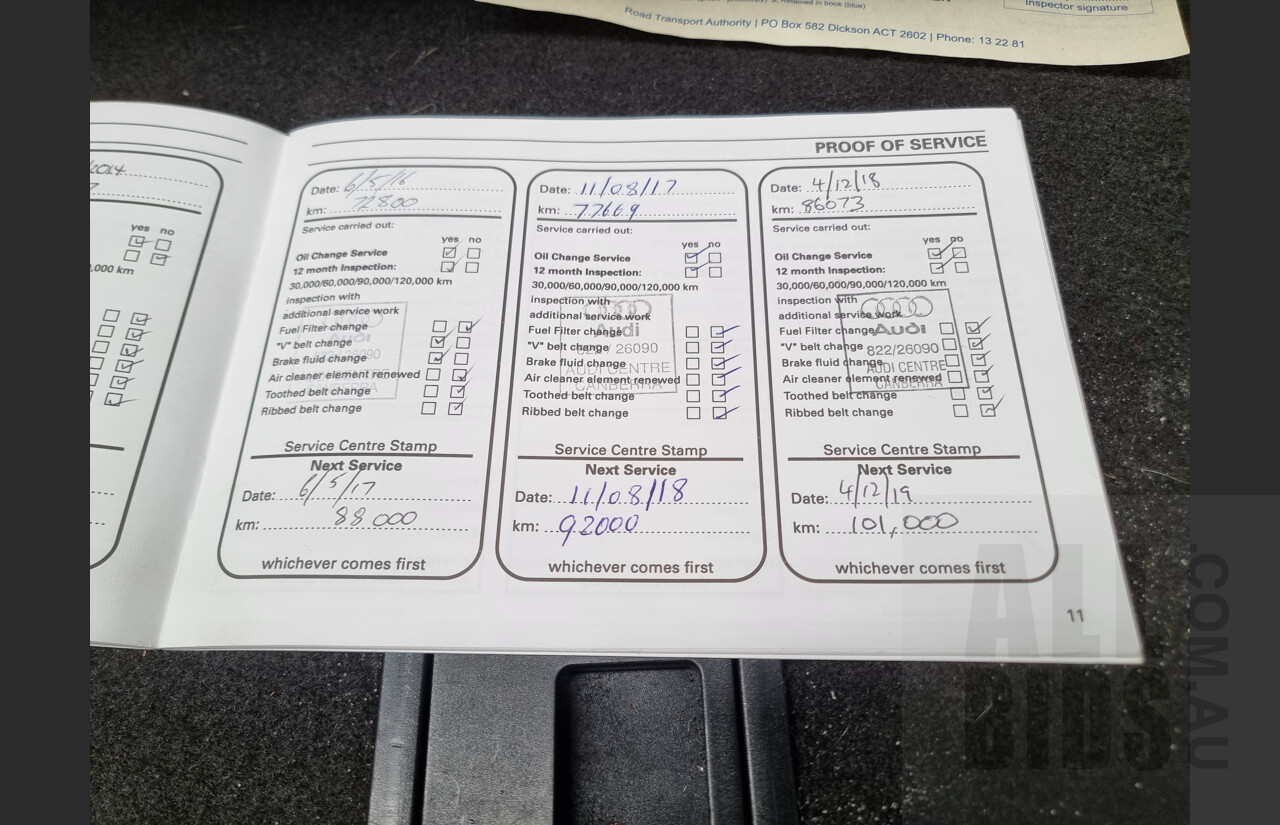 Retained in book (blue)
Inspector signature
Road Transport Authority | PO Box 582 Dickson ACT 2602 | Phone: 13 22 81
PROOF OF SERVICE
2014
yes no
,000 km
Date: 6/5/16
km: 72800
Service carried out:
yes no
Oil Change Service
12 month Inspection:
30,000/60,000/90,000/120,000 km
inspection with
additional service work
Fuel Filter change
"V" belt change
Brake fluid change
Air cleaner element renewed
Toothed belt change
Ribbed belt change
Audi
822/26090
CANBERRA
Service Centre Stamp
Next Service
Date: 6/5/17
km: 88 000
whichever comes first
Date: 11/08/17
km: 77669
Service carried out:
yes no
Oil Change Service
12 month Inspection:
30,000/60,000/90,000/120,000 km
inspection with
additional service work
Fuel Filter change
"V" belt change
Brake fluid change
Air cleaner element renewed
Toothed belt change
Ribbed belt change
Audi
822/26090
AUDI CENTRE
CANBERRA
Service Centre Stamp
Next Service
Date: 11/08/18
km: 92000
whichever comes first
Date: 4/12/18
km: 86073
Service carried out:
yes no
Oil Change Service
12 month Inspection:
30,000/60,000/90,000/120,000 km
inspection with
additional service work
Fuel Filter change
"V" belt change
Brake fluid change
Air cleaner element renewed
Toothed belt change
Ribbed belt change
Audi
822/26090
AUDI CENTRE
CANBERRA
Service Centre Stamp
Next Service
Date: 4/12/19
km: 101,000
whichever comes first
11
ALL
BIDS
.COM.AU